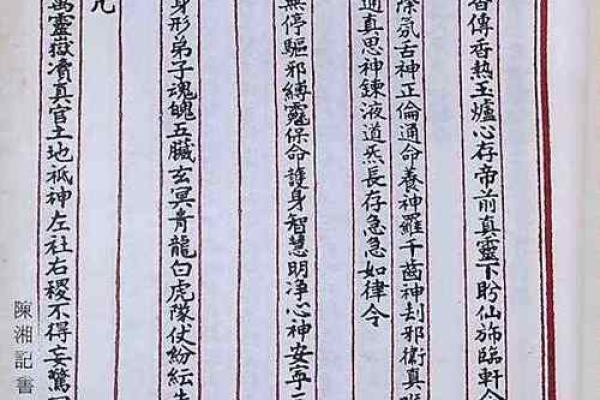 香傳香熱玉爐心存帝前真靈下盻仙斾臨軒令
除氛舌神正倫通命養神羅千齒神却邪衛真喉
通真思神鍊液道炁長存急急如律令
無停驅邪縛魅保命護身智慧明淨心神安寧三
身形弟子魂魄五臟玄冥青龍白虎隊仗紛紜朱
咒
萬靈嶽瀆真官土地祇神左社右稷不得妄驚回
陳湘記書